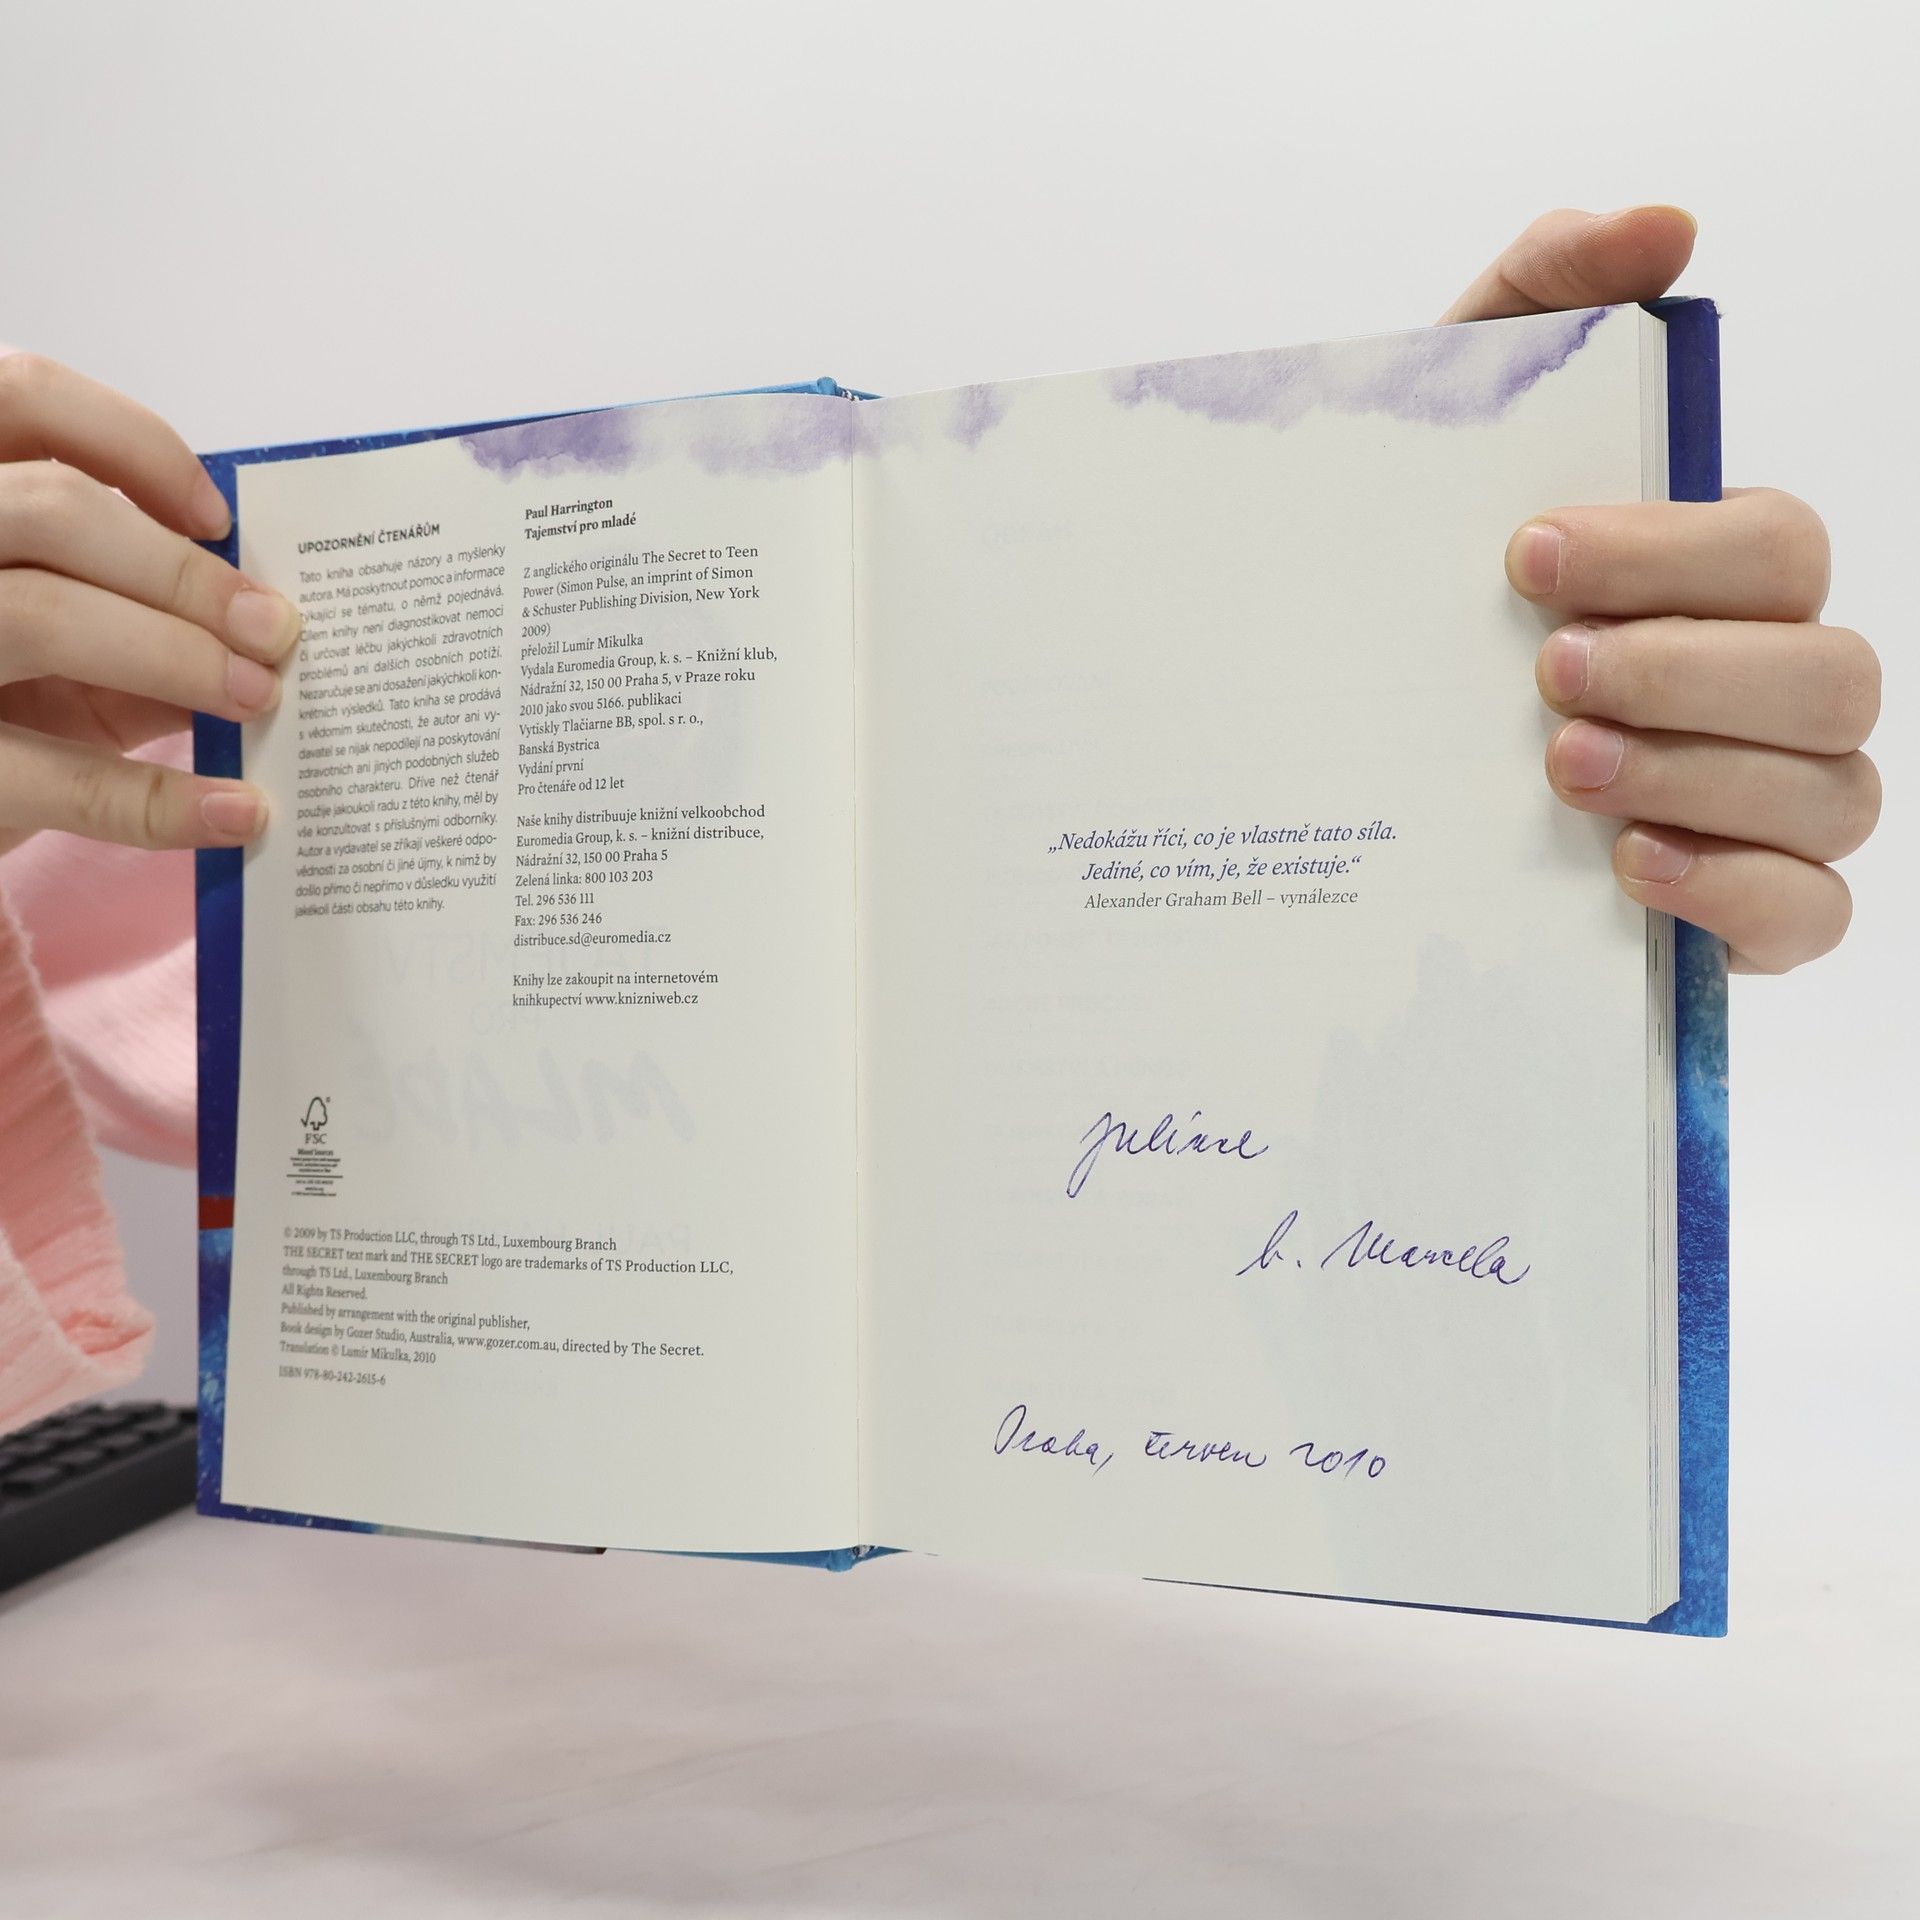 UPOZORNĚNÍ ČTENÁŘŮM
Tato kniha obsahuje názory a myšlenky
autora. Má poskytnout pomoc a informace
týkající se tématu, o němž pojednává.
Cílem knihy není diagnostikovat nemoci
či určovat léčbu jakýchkoli zdravotních
problémů ani dalších osobních potíží.
Nezaručuje se ani dosažení jakýchkoli kon-
krétních výsledků. Tato kniha se prodává
s vědomím skutečnosti, že autor ani vy-
davatel se nijak nepodílejí na poskytování
zdravotních ani jiných podobných služeb
osobního charakteru. Dříve než čtenář
použije jakoukoli radu z této knihy, měl by
vše konzultovat s příslušnými odborníky.
Autor a vydavatel se zříkají veškeré odpo-
vědnosti za osobní či jiné újmy, k nimž by
došlo přímo či nepřímo v důsledku využití
jakékoli části obsahu této knihy.
Paul Harrington
Tajemství pro mladé
Z anglického originálu The Secret to Teen
Power (Simon Pulse, an imprint of Simon
& Schuster Publishing Division, New York
2009)
přeložil Lumír Mikulka
Vydala Euromedia Group, k. s. – Knižní klub,
Nádražní 32, 150 00 Praha 5, v Praze roku
2010 jako svou 5166. publikaci
Vytiskly Tlačiarne BB, spol. s r. o.,
Banská Bystrica
Vydání první
Pro čtenáře od 12 let
Naše knihy distribuuje knižní velkoobchod
Euromedia Group, k. s. – knižní distribuce,
Nádražní 32, 150 00 Praha 5
Zelená linka: 800 103 203
Tel. 296 536 111
Fax: 296 536 246
distribuce.sd@euromedia.cz
Knihy lze zakoupit na internetovém
knihkupectví www.knizniweb.cz
FSC
Mixed Sources
© 2009 by TS Production LLC, through TS Ltd., Luxembourg Branch
THE SECRET text mark and THE SECRET logo are trademarks of TS Production LLC,
through TS Ltd., Luxembourg Branch
All Rights Reserved.
Published by arrangement with the original publisher,
Book design by Gozer Studio, Australia, www.gozer.com.au, directed by The Secret.
Translation © Lumír Mikulka, 2010
ISBN 978-80-242-2615-6
„Nedokážu říci, co je vlastně tato síla.
Jediné, co vím, je, že existuje.“
Alexander Graham Bell – vynálezce
Julince
b. Marcela
Praha, červen 2010